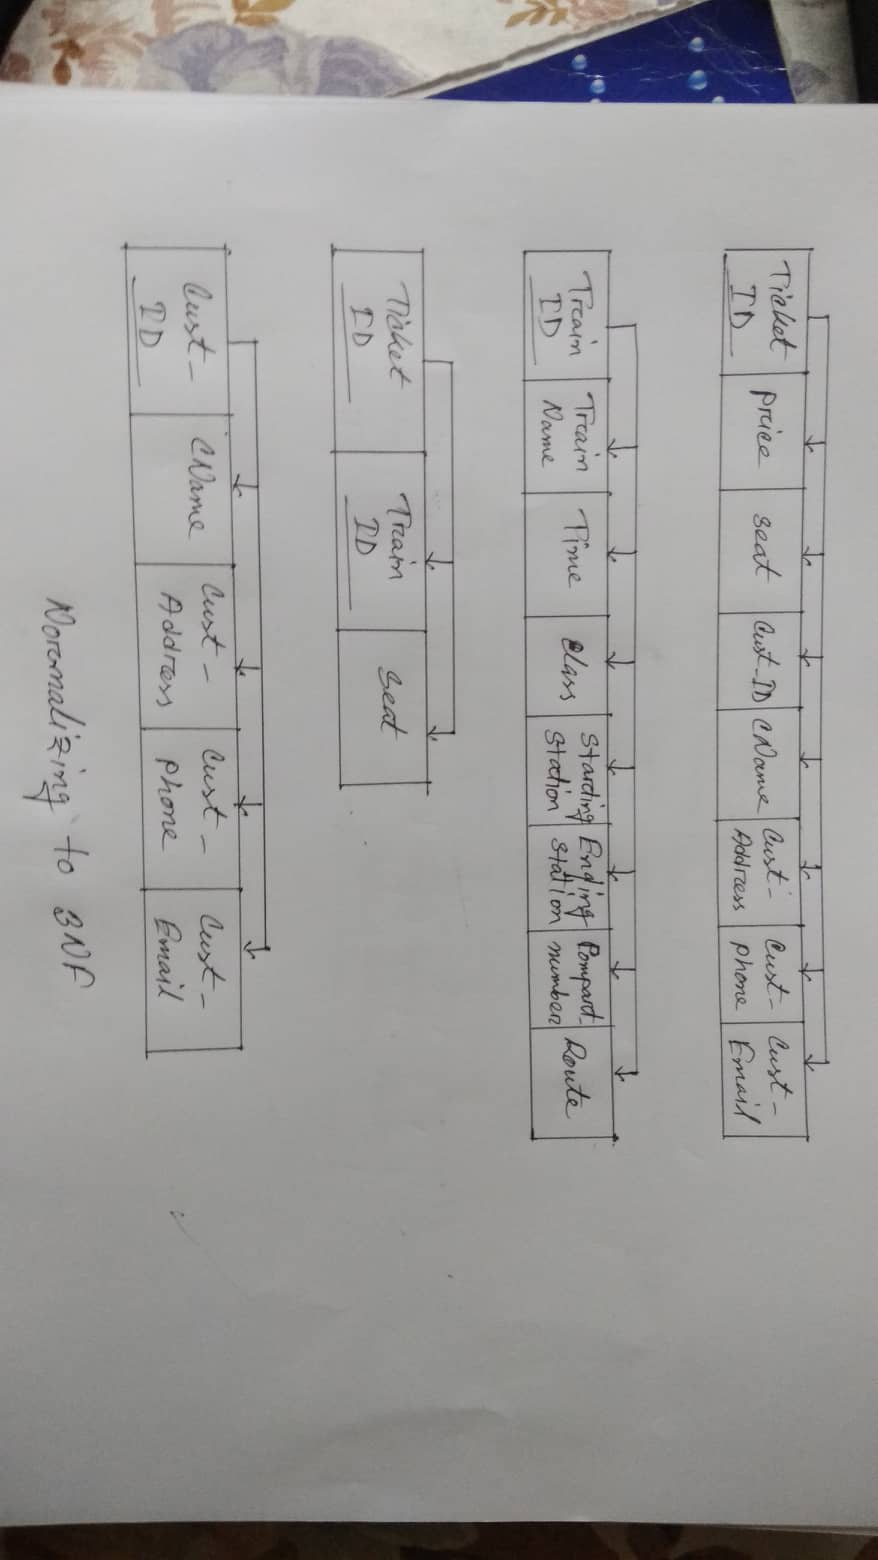 Ticket ID
Price
Seat
Cust-ID
CName
Cust-Address
Cust-Phone
Cust-Email
Train ID
Train Name
Time
Class
Starting Station
Ending Station
Compart. number
Route
Ticket ID
Train ID
Seat
Cust-ID
CName
Cust-Address
Cust-Phone
Cust-Email
Normalizing to 3NF